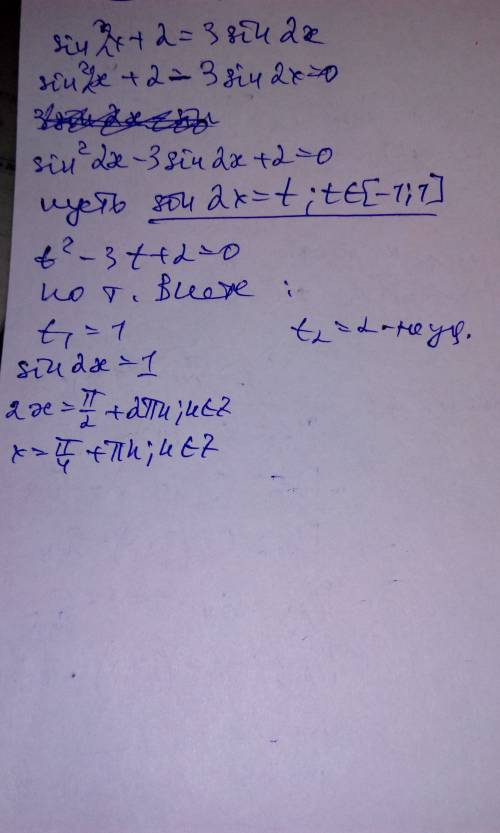 sin²2x + 2 = 3 sin 2x
sin²2x + 2 - 3 sin 2x = 0
sin² 2x - 3 sin 2x + 2 = 0
пусть sin 2x = t ; t ∈ [-1; 1]
t² - 3t + 2 = 0
по т. Виета :
t₁ = 1 t₂ = 2 - не уд.
sin 2x = 1
2x = π/2 + 2πn ; n ∈ Z
x = π/4 + πn ; n ∈ Z